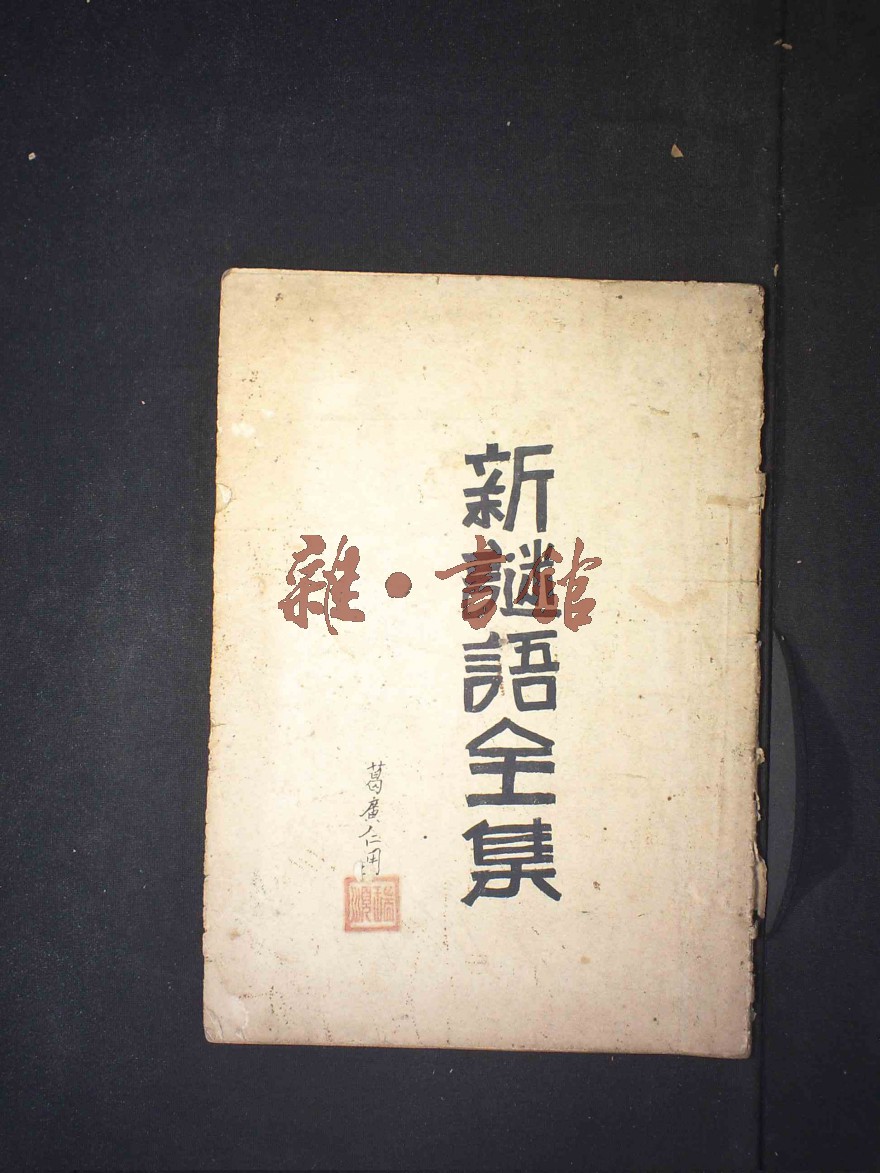 新謎語全集
雜·書館
葛廣仁用